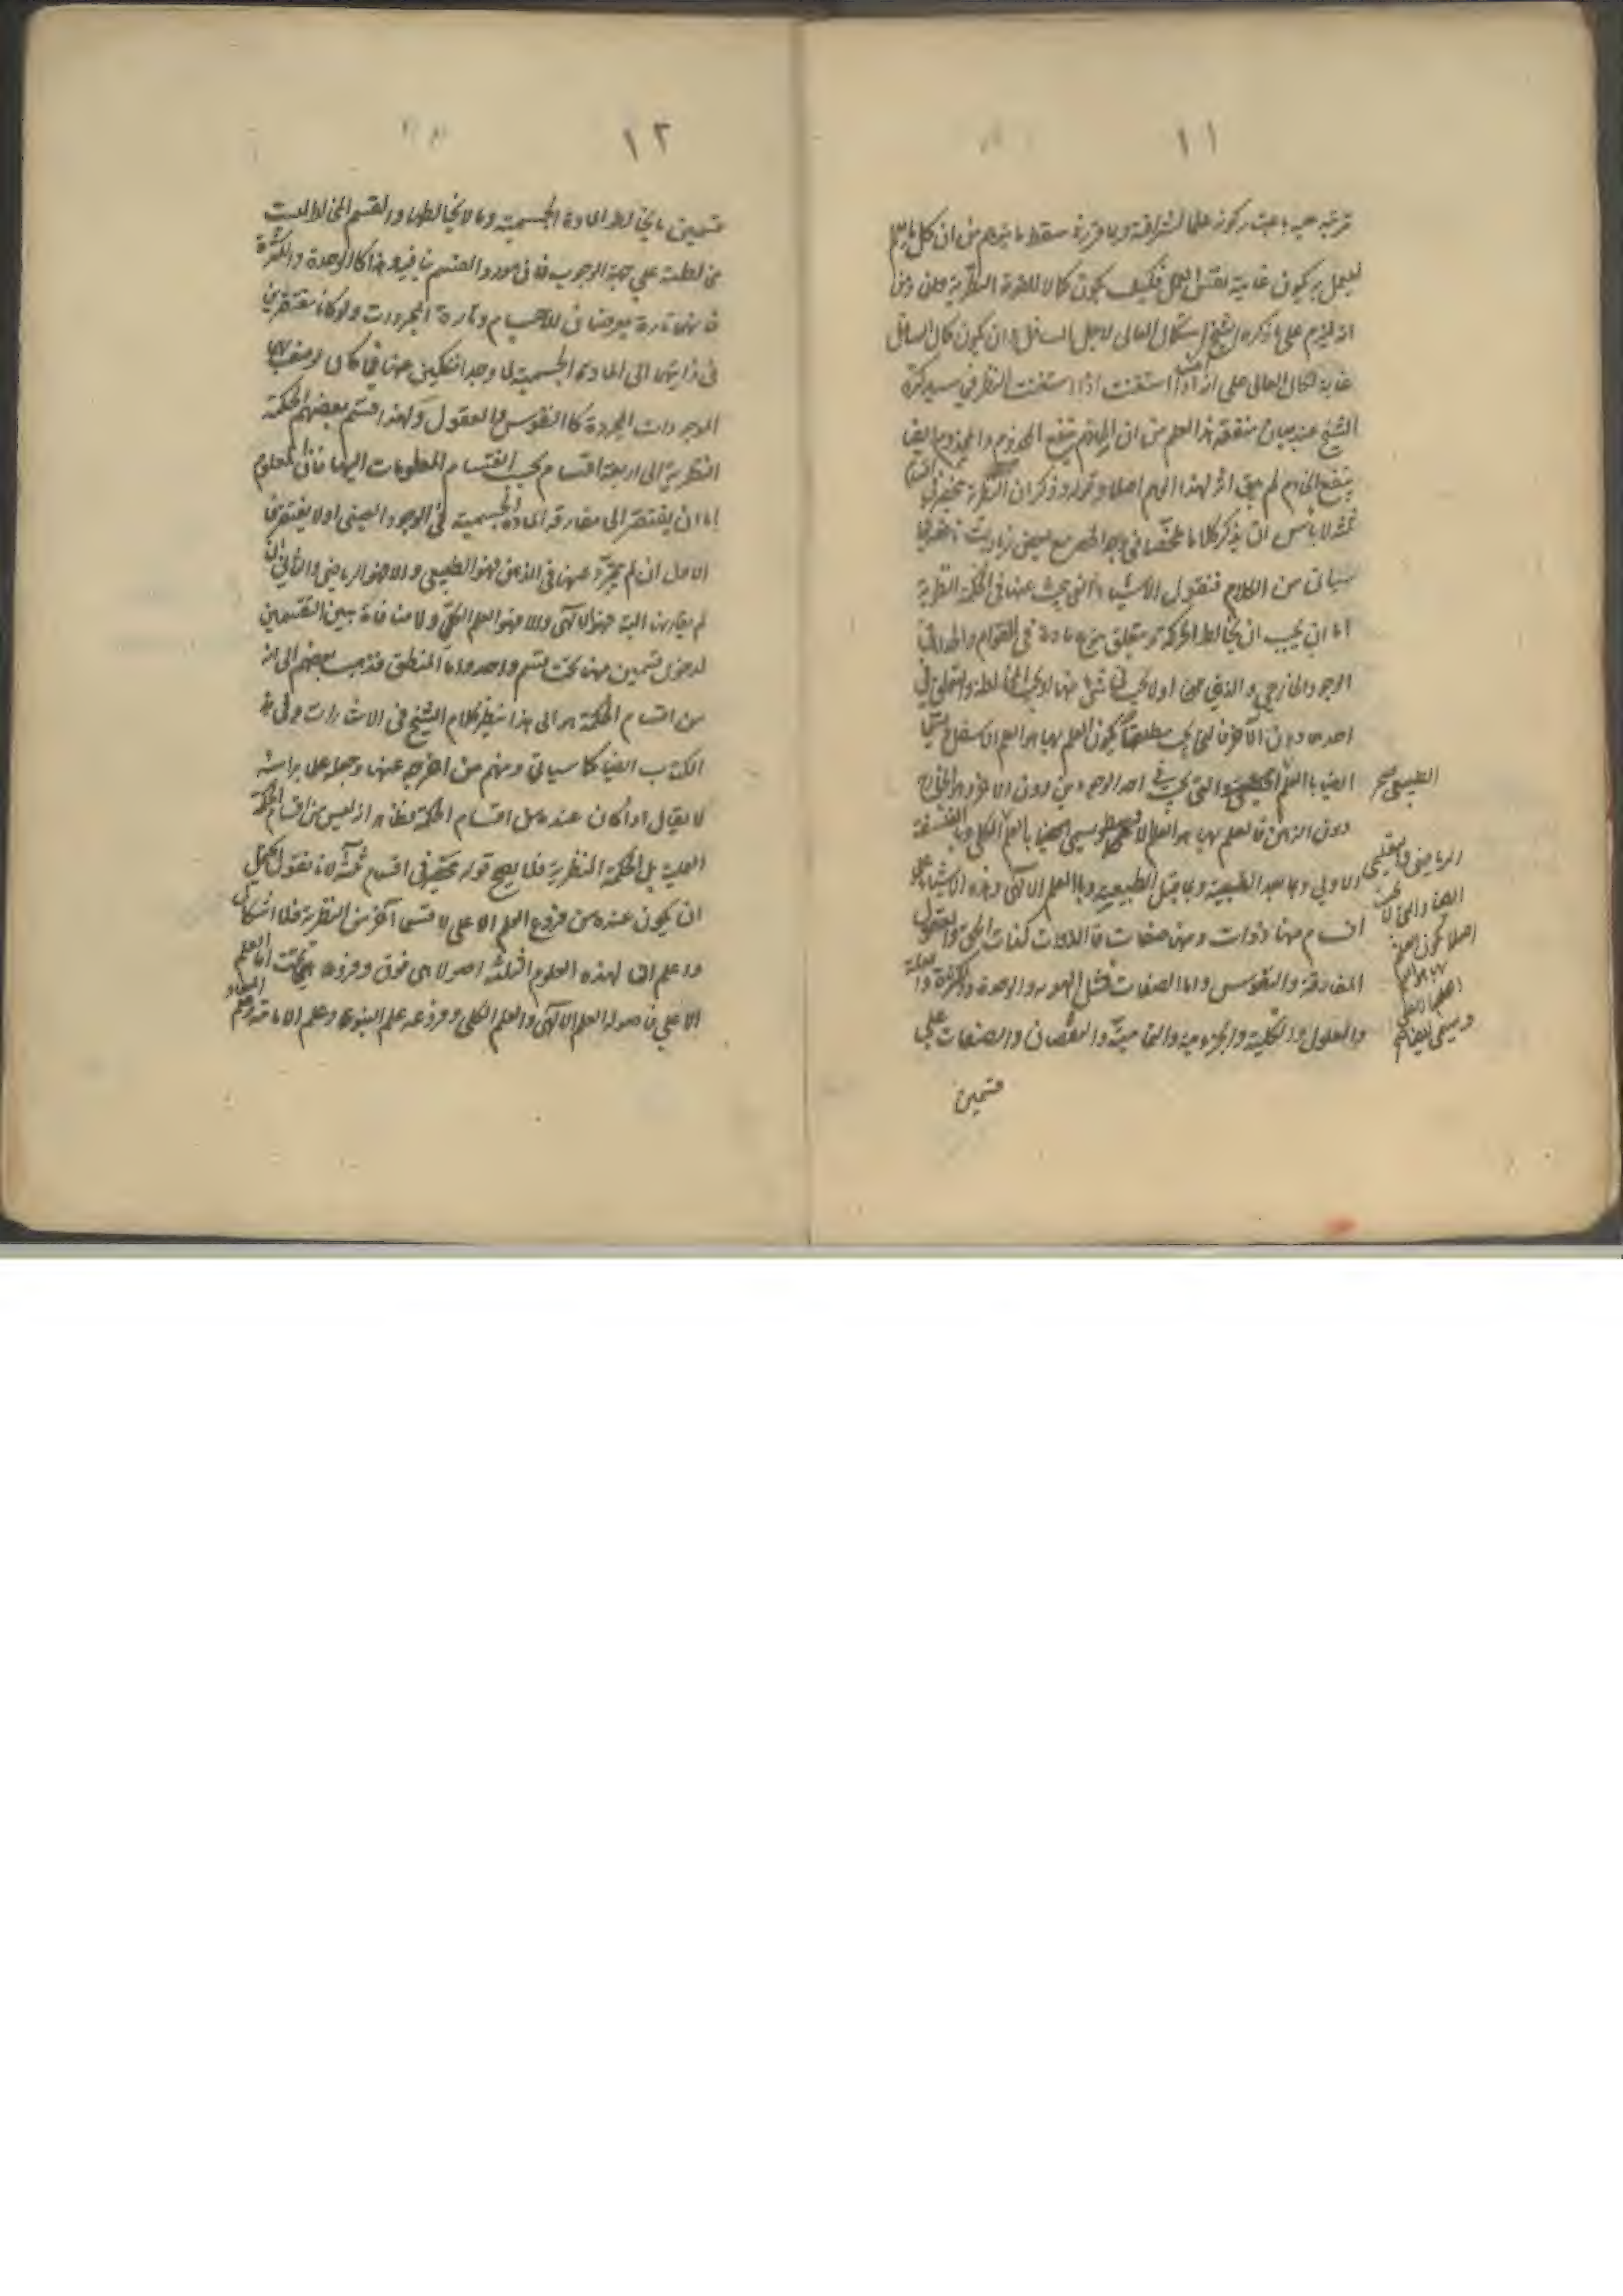 ١١
ليعمل به يكون غاية لنفس العمل فكيف يكون كمالا للقوة النظرية
انه يلزم على ما ذكره الشيخ استكمال العالى لاجل السافل وان يكون كمال السافل
غاية لكمال العالى على استغنت النظر فى سيد كره
الشيخ عند بيان منفعة هذا العلم من ان الخادم ينفع المخدوم والمخدوم ايضا
ينفع الخادم لم يبق اثر لهذا الوهم اصلا وقوله وذكر ان النظرية
ثلثة لا باس ان يذكر كلاما ملخصا فى وجه الحصر مع بعض زيادات
سياتى من الكلام فنقول الاشياء التى يبحث عنها فى الحكمة النظرية
اما ان يجب ان يخالط الحركة ويتعلق بنوع مادة فى القوام والحد
الوجود الخارجى والذهنى او لا يجب فى شئ منهما او يجب المخالطة والتعلق فى
احدهما دون الآخر فالتى يجب مطلقا يكون العلم بها هو العلم الاسفل ويسمى
ايضا بالعلم الطبيعى والتى يجب فى احد الوجودين دون الاخر وهو الخارج
دون الذهن فالعلم بها هو العلم الاوسط ويسمى ايضا بالعلم الكلى وبالفلسفة
الاولى وما بعد الطبيعة وما قبل الطبيعة وبالعلم الالهى وهذه الاشياء على
اقسام منها ذوات ومنها صفات فالذوات كذات الحق والعقول
المفارقة والنفوس واما الصفات فمثل الهوية والوحدة والكثرة والعلة
والمعلول والكلية والجزئية والتمامية والنقصان والصفات على
قسمين
الطبيعى
الرياضى والتعليمى
ايضا والتى لا يجب
اصلا يكون العلم
بها هو العلم
الاعلى
ويسمى ايضا
١٢
قسمين ما يخالط المادة الجسمية وما لا يخالطها والقسم المخالط ليست
مخالطته على جهة الوجوب هذا كالوحدة والكثرة
فانهما تارة يعرضان للاجسام وتارة المجردات ولو كانا مفتقرين
فى ذاتيهما الى المادة الجسمية لما وجدا منفكين عنها
الموجودات المجردة كالنفوس والعقول ولهذا قسم بعضهم الحكمة
النظرية الى اربعة اقسام بحسب انقسام المعلومات اليها فان المعلوم
اما ان يفتقر الى مقارنة المادة الجسمية فى الوجود العينى او لا يفتقر
الاول ان لم يتجرد عنها فى الذهن فهو الطبيعى والا فهو الرياضى والثانى ان
لم يقارنها البتة فهو الالهى والا فهو العلم الكلى ولا منافاة بين التقسيمين
لدخول قسمين منها تحت قسم واحد واما المنطق فذهب بعضهم الى انه
من اقسام الحكمة والى هذا ينظر كلام الشيخ فى الاشارات وفى هذا
الكتاب ايضا كما سياتى ومنهم من اخرجه عنها وجعله على براسه
لا يقال اذا كان عنده من اقسام الحكمة فظاهر انه ليس من اقسام الحكمة
العملية بل الحكمة النظرية فلا يصح قوله ينحصر فى اقسام ثلثة لانا نقول يحتمل
ان يكون عنده من فروع العلم الاعلى لا قسما آخر من النظرية فلا اشكال
واعلم ان لهذه العلوم الثلثة اصولا هى فوق وفروعا هى تحت اما العلم
الاعلى فاصوله العلم الالهى والعلم الكلى وفروعه علم النبوة وعلم الامامة وعلم
المعاد